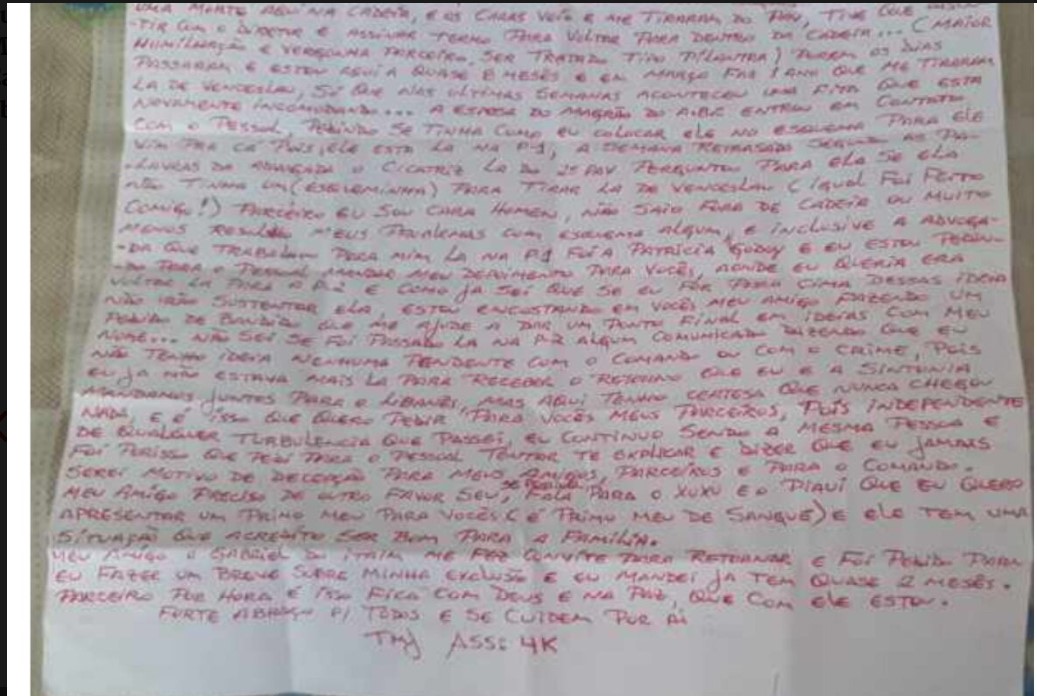 UMA MORTE AQUI NA CADEIA, E OS CARAS VEIO E ME TIRARAM DO PAV, TIVE QUE
-TIR COM O DIRETOR E ASSINAR TERMO PARA VOLTAR PARA DENTRO DA CADEIA... (MAIOR
HUMILHAÇÃO E VERGONHA PARCEIRO, SER TRATADO TIPO PILANTRA) POREM OS DIAS
PASSARAM E ESTOU AQUI A QUASE 8 MESÊS E EM MARÇO FAZ 1 ANO QUE ME TIRARAM
LA DE VENCESLAU, SÓ QUE NAS ULTIMAS SEMANAS ACONTECEU UMA FITA QUE ESTA
NOVAMENTE INCOMODANDO... A ESPOSA DO MAGRÃO DO A.B.C ENTROU EM CONTATO
COM O PESSOAL, PEDINDO SE TINHA COMO EU COLOCAR ELE NO ESQUEMA PARA ELE
VIM PRA CÁ POIS, ELE ESTA LA NA P-1, A SEMANA RETRASADA SEGUNDO AS PA-
-LAVRAS DA ADVOGADA O CICATRIZ LA DO 2º PAV PERGUNTOU PARA ELA SE ELA
NÃO TINHA UM (ESQUEMINHA) PARA TIRAR LA DE VENCESLAU (IGUAL FOI FEITO
COMIGO!) PARCEIRO EU SOU CARA HOMEM, NÃO SAIO FORA DE CADEIA OU MUITO
MENOS RESOLVO MEUS PROBLEMAS COM ESQUEMA ALGUM, E INCLUSIVE A ADVOGA-
-DA QUE TRABALHOU PARA MIM LA NA P1 FOI A PATRICIA GODOY E EU ESTOU PEDIN-
-DO PARA O PESSOAL MANDAR MEU DEPOIMENTO PARA VOCÊS, AONDE EU QUERIA ERA
VOLTAR LA PARA A P.2 E COMO JA SEI QUE SE EU FOR PARA CIMA DESSAS IDEIA
NÃO IRÃO SUSTENTAR ELA, ESTOU ENCOSTANDO EM VOCÊS MEU AMIGO FAZENDO UM
PEDIDO DE BANDIDO QUE ME AJUDE A DAR UM PONTO FINAL EM IDEIAS COM MEU
NOME... NÃO SEI SE FOI PASSADO LA NA P.2 ALGUM COMUNICADO DIZENDO QUE EU
NÃO TENHO IDEIA NENHUMA PENDENTE COM O COMANDO OU COM O CRIME, POIS
EU JA NÃO ESTAVA MAIS LA PARA RECEBER O RETORNO QUE EU E A SINTONIA
MANDAMOS JUNTOS PARA O LIBANÊS, MAS AQUI TENHO CERTESA QUE NUNCA CHEGOU
NADA, E É ISSO QUE QUERO PEDIR PARA VOCÊS MEUS PARCEIROS, POIS INDEPENDENTE
DE QUALQUER TURBULENCIA QUE PASSEI, EU CONTINUO SENDO A MESMA PESSOA E
FOI PORISSO QUE PEDI PARA O PESSOAL TENTAR TE EXPLICAR E DIZER QUE EU JAMAIS
SEREI MOTIVO DE DECEPÇÃO PARA MEUS AMIGOS, PARCEIROS E PARA O COMANDO.
MEU AMIGO PRECISO DE OUTRO FAVOR SEU, FALA PARA O XUXU E O PIAUÍ QUE EU QUERO
APRESENTAR UM PRIMO MEU PARA VOCÊS (É PRIMO MEU DE SANGUE) E ELE TEM UMA
SITUAÇÃO QUE ACREDITO SER BOM PARA A FAMÍLIA.
MEU AMIGO O GABRIEL DO ITAIM ME FEZ CONVITE PARA RETORNAR E FOI PEDIDO PARA
EU FAZER UM BREVE SOBRE MINHA EXCLUSÃO E EU MANDEI JA TEM QUASE 2 MESÊS.
PARCEIRO POR HORA É ISSO FICA COM DEUS E NA PAZ, QUE COM ELE ESTOU.
FORTE ABRAÇO P/ TODOS E SE CUIDEM POR AÍ
TMJ ASS: 4K